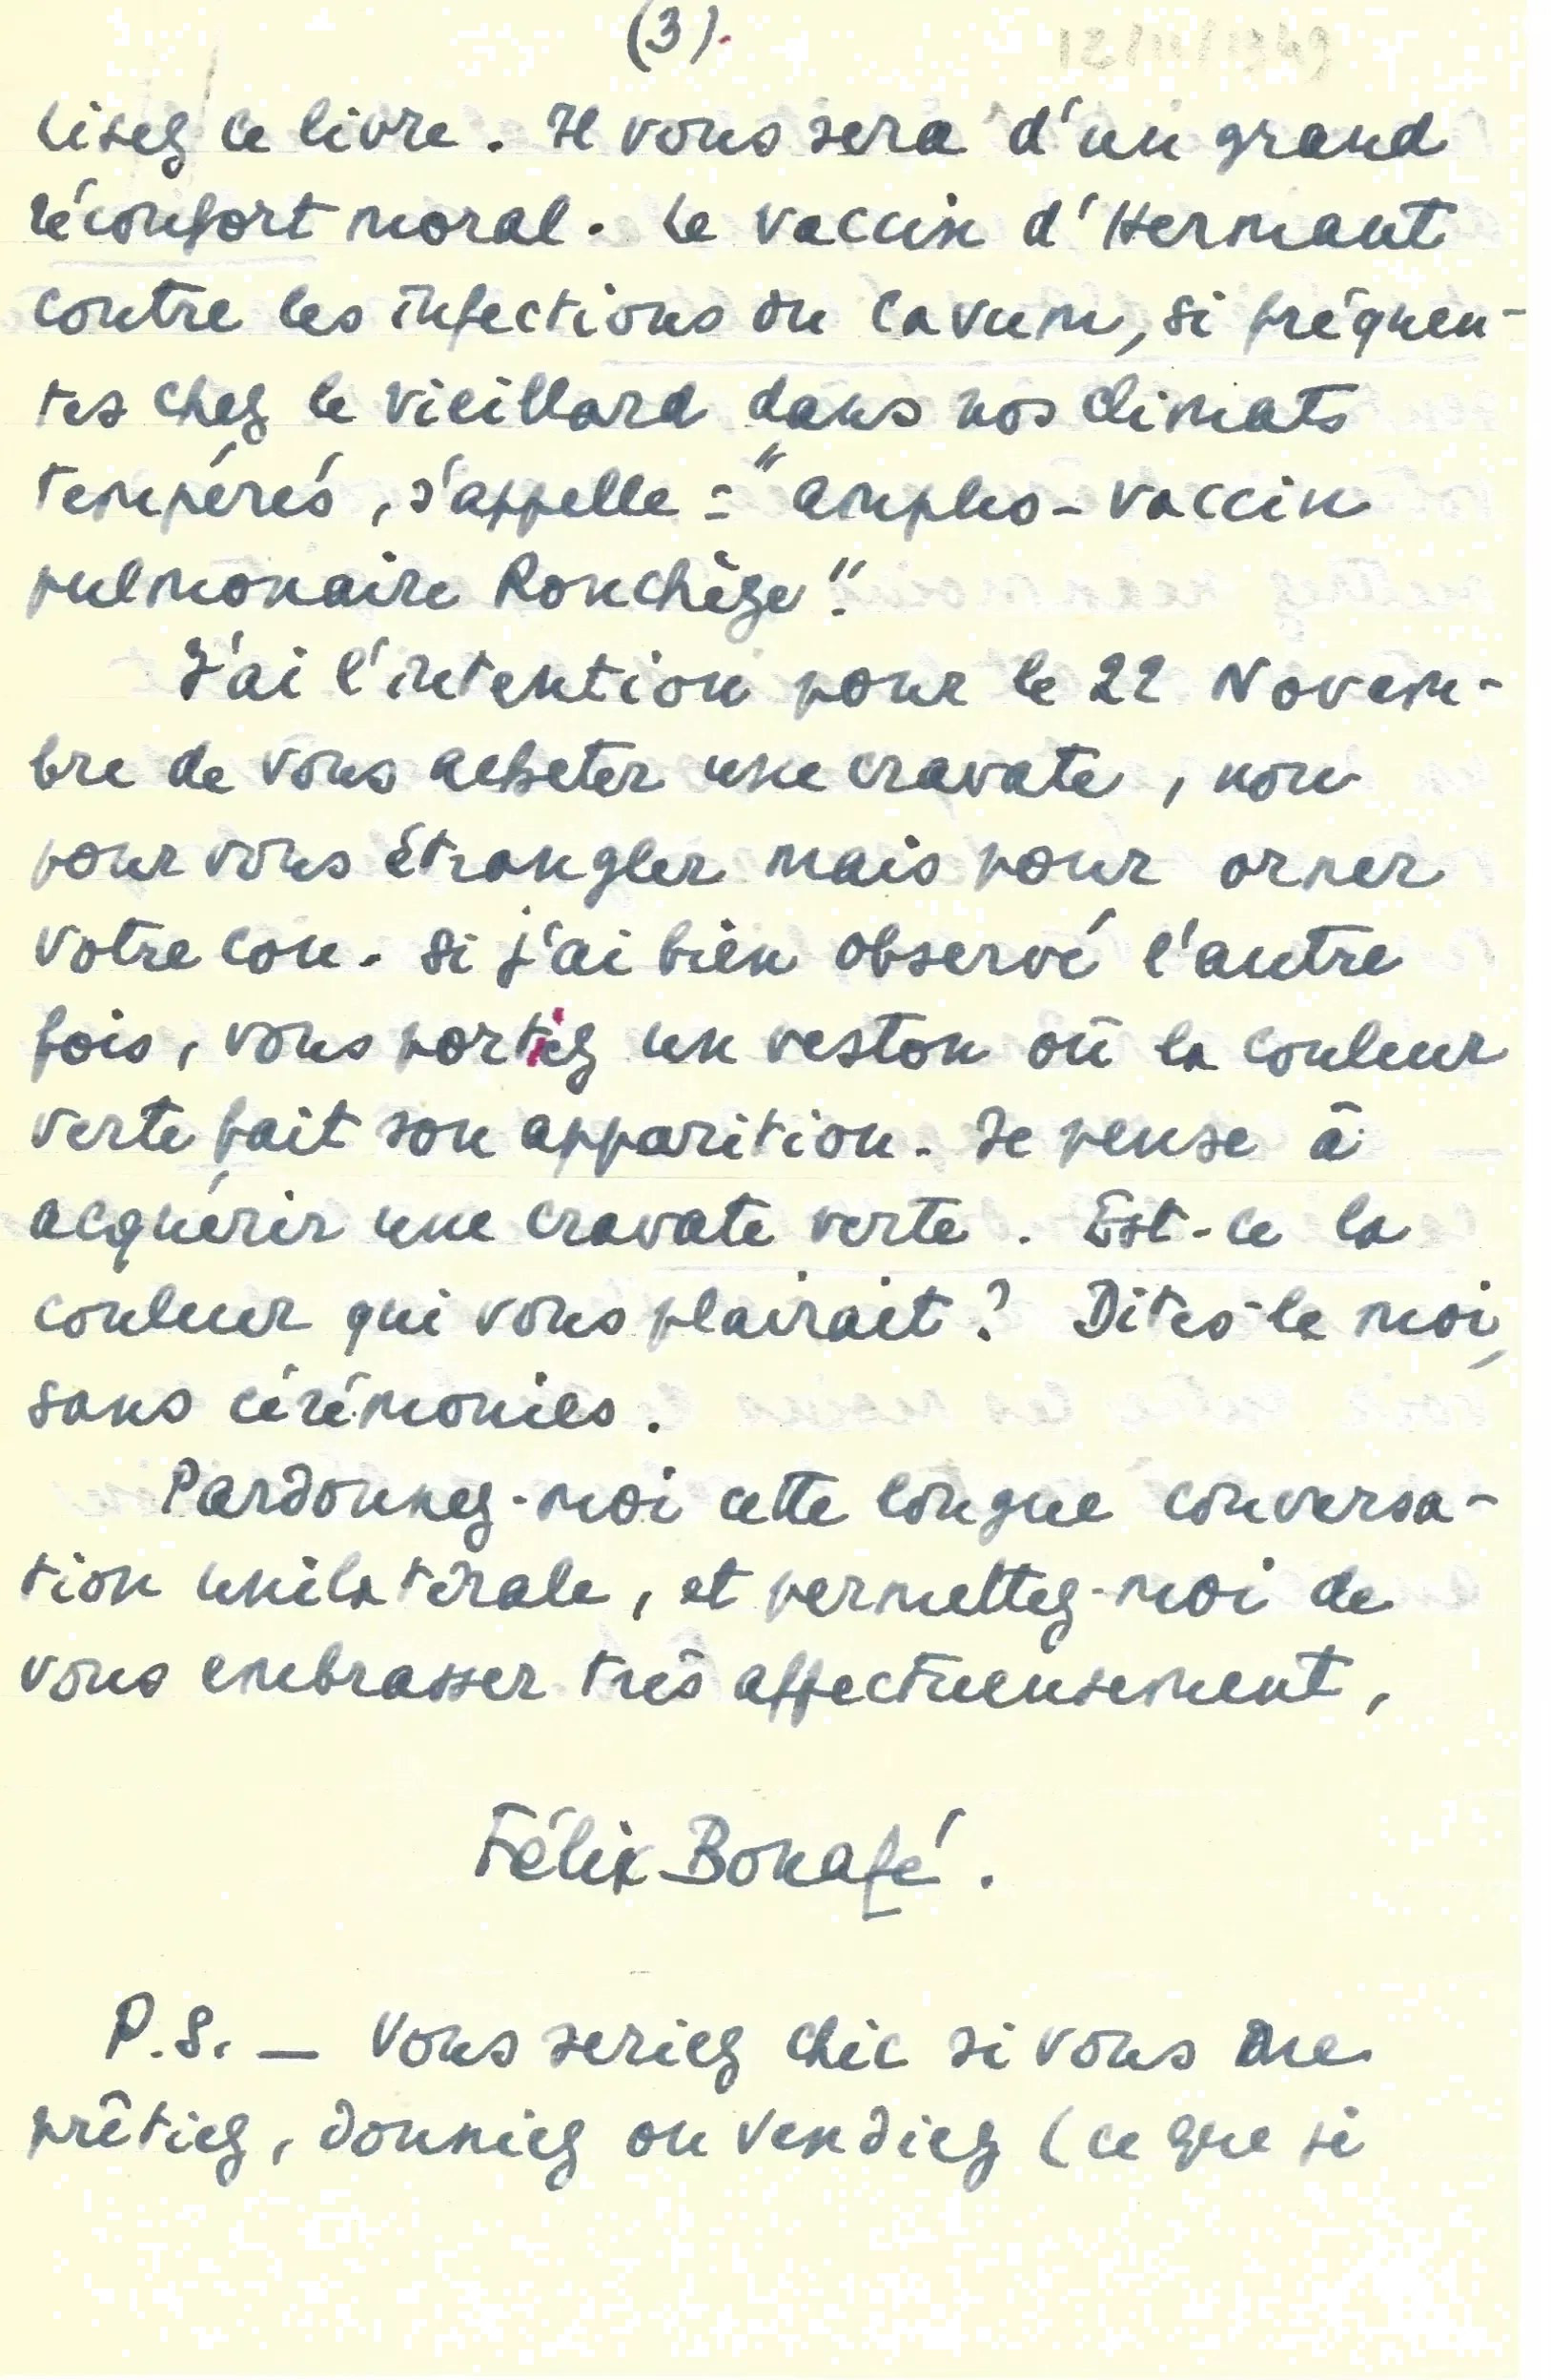 (3).
12/11/1949
Lisez ce livre. Il vous sera d'un grand
réconfort moral. Le vaccin d'Hermant
contre les infections du cavum, si fréquen-
tes chez le vieillard dans nos climats
tempérés, s'appelle : "ampho-vaccin
pulmonaire Ronchèze".
J'ai l'intention pour le 22 Novem-
bre de vous acheter une cravate, non
pour vous étrangler mais pour orner
votre cou. Si j'ai bien observé l'autre
fois, vous portiez un veston où la couleur
verte fait son apparition. Je pense à
acquérir une cravate verte. Est-ce la
couleur qui vous plairait ? Dites-le moi,
sans cérémonies.
Pardonnez-moi cette longue conversa-
tion unilatérale, et permettez-moi de
vous embrasser très affectueusement,
Félix Bonafé.
P.S. — Vous seriez chic si vous me
prêtiez, donniez ou vendiez (ce que si